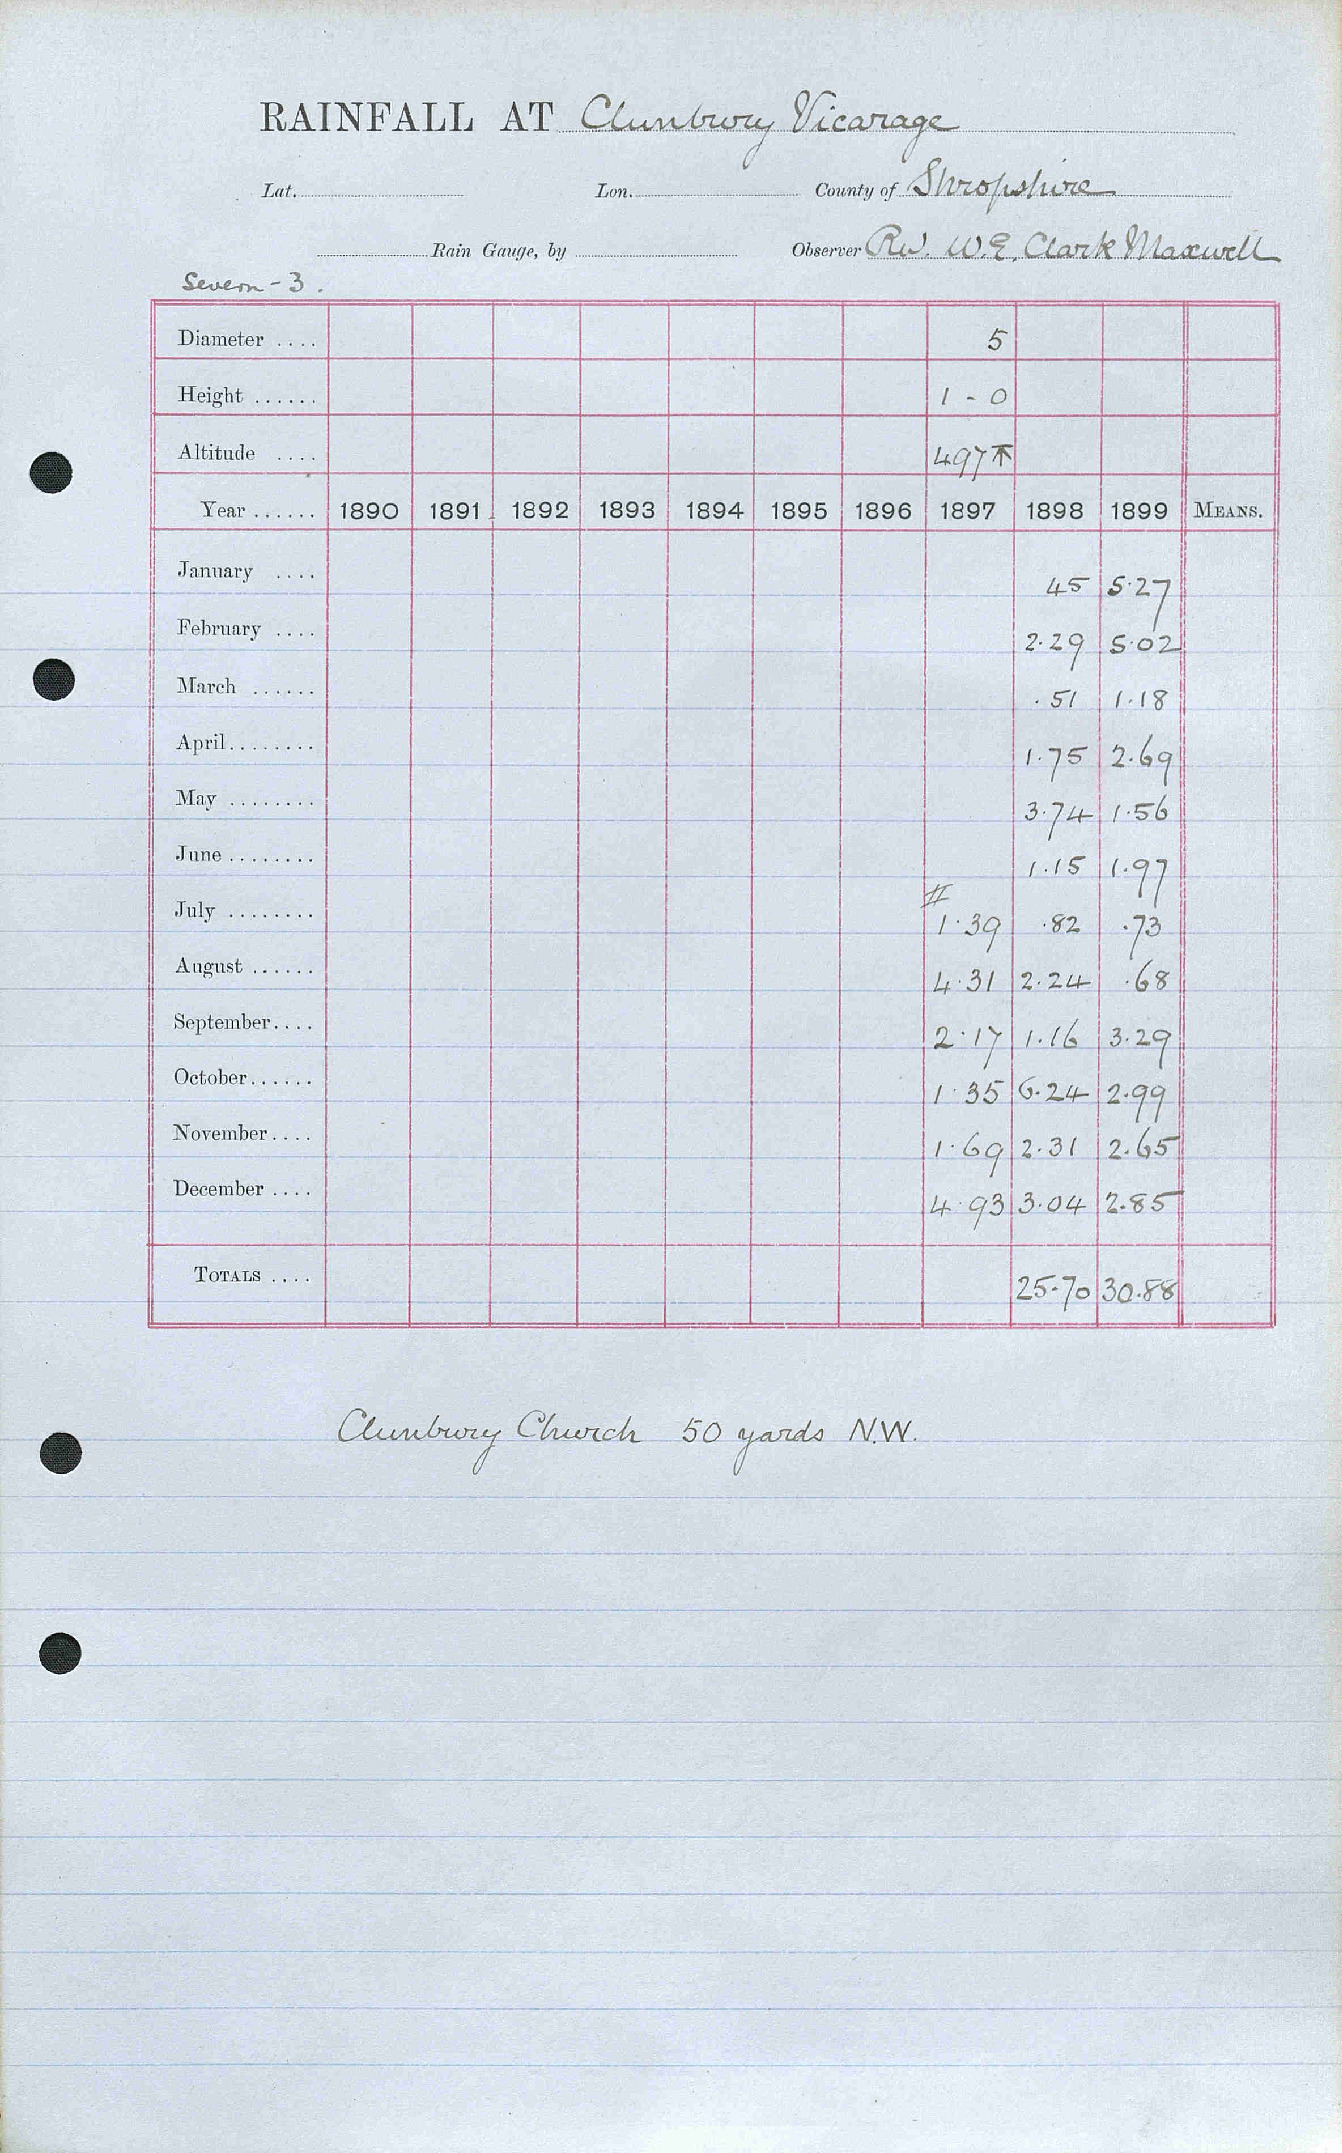 RAINFALL AT Clunbury Vicarage
Lat. Lon. County of Shropshire
Rain Gauge, by Observer Rev. W.E. Clark Maxwell
Severn - 3.
Diameter .... 5
Height ...... 1 - 0
Altitude .... 497
Year ...... 1890 1891 1892 1893 1894 1895 1896 1897 1898 1899 MEANS.
January .... 45 5.27
February .... 2.29 5.02
March ...... .51 1.18
April........ 1.75 2.69
May ........ 3.74 1.56
June ........ 1.15 1.97
July ........ # 1.39 .82 .73
August ...... 4.31 2.24 .68
September.... 2.17 1.16 3.29
October...... 1.35 6.24 2.99
November.... 1.69 2.31 2.65
December .... 4.93 3.04 2.85
TOTALS .... 25.70 30.88
Clunbury Church 50 yards N.W.